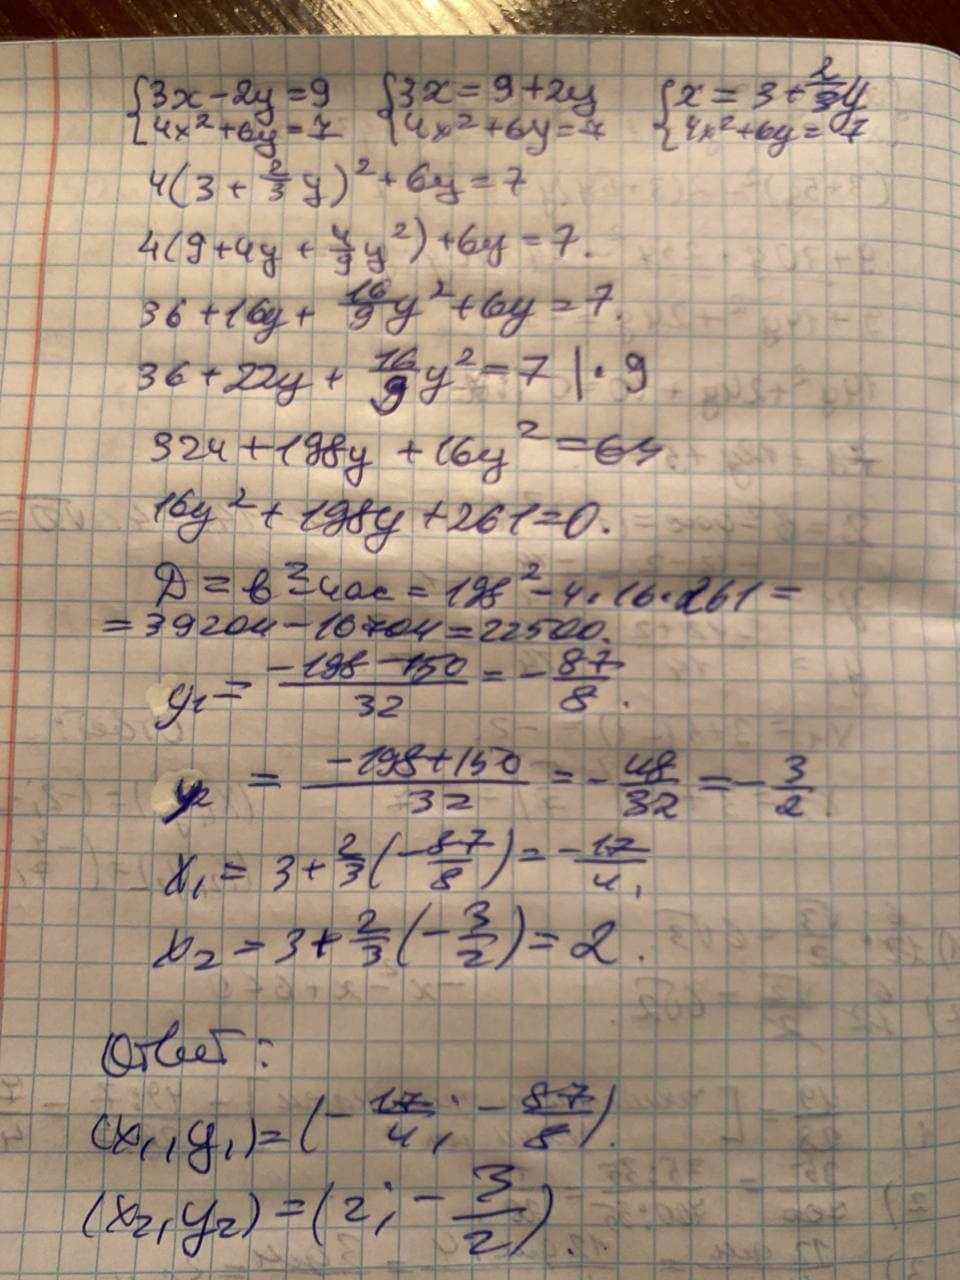 {3x-2y=9 {3x=9+2y {x=3+2/3y
{4x²+6y=7 {4x²+6y=7 {4x²+6y=7
4(3+2/3y)²+6y=7
4(9+4y+4/9y²)+6y=7.
36+16y+16/9y²+6y=7.
36+22y+16/9y²=7|·9
324+198y+16y²=64
16y²+198y+261=0.
Д=в²-4ac=198²-4·16·261=
=39204-16704=22500.
y₁=(-198-150)/32=-87/8.
y₂=(-198+150)/32=-48/32=-3/2.
x₁=3+2/3(-87/8)=-17/4,
x₂=3+2/3(-3/2)=2.
Ответ:
(x₁,y₁)=(-17/4;-87/8).
(x₂,y₂)=(2;-3/2).